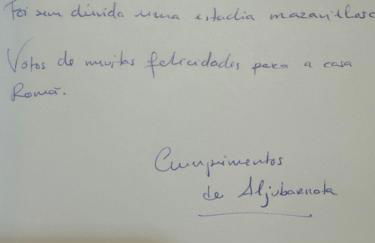 Foi sem dúvida uma estadia maravilhosa
Votos de muitas felicidades para a casa
Romã.
Cumprimentos
de Aljubarrota